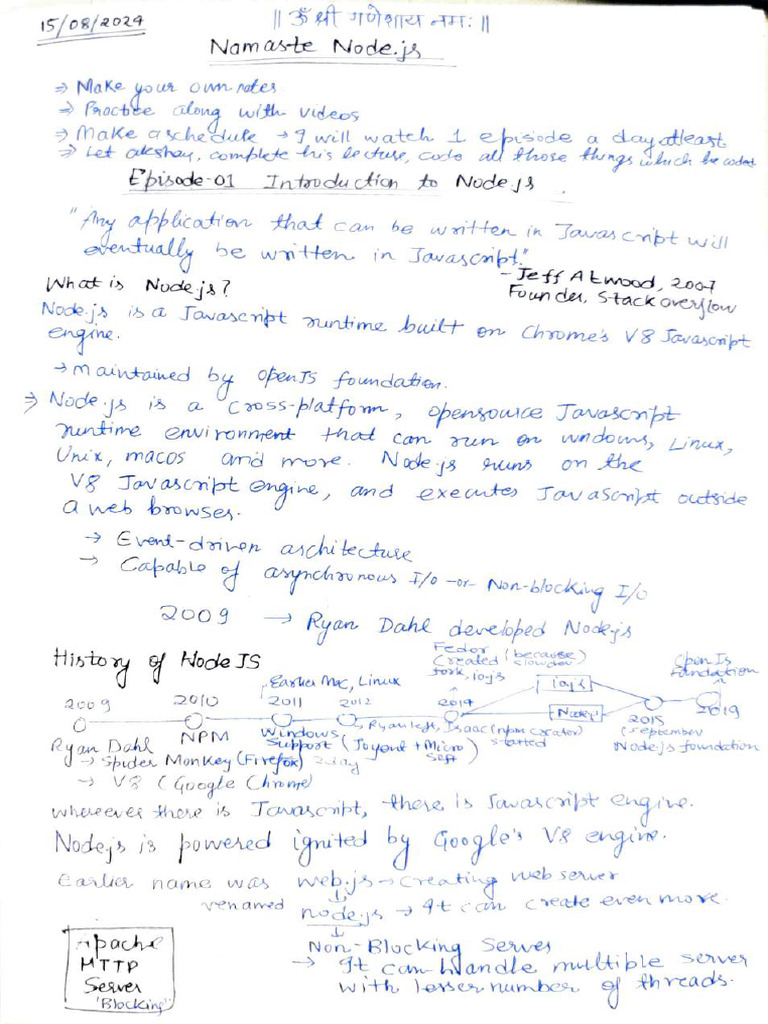 15/08/2024
॥ ॐ श्री गणेशाय नमः ॥
Namaste Node.js
⇒ Make your own notes
⇒ Practice along with videos
⇒ Make a schedule → I will watch 1 episode a day atleast
⇒ Let akshay, complete his lecture, code all those things which he coded
Episode-01 Introduction to Node.js
"Any application that can be written in Javascript will
eventually be written in Javascript."
- Jeff Atwood, 2007
Founder, Stack overflow
What is Node.js?
Node.js is a Javascript runtime built on Chrome's V8 Javascript
engine.
→ Maintained by openJS foundation.
⇒ Node.js is a cross-platform, opensource Javascript
runtime environment that can run on windows, Linux,
Unix, macos and more. Node.js runs on the
V8 Javascript engine, and executes JavaScript outside
a web browser.
→ Event-driven architecture
→ Capable of asynchronous I/O -or- Non-blocking I/O
2009 → Ryan Dahl developed Node.js
History of Node JS
2009
Ryan Dahl
→ Spider Monkey (Firefox) 2 day
→ V8 (Google Chrome)
2010
NPM
Earlier Mac, Linux
2011
Windows
Support (Joyent + Micro
soft)
2012
Ryan left, Isaac (npm creator)
started
Fedor (because
created slowdev
fork, io.js
2014
io.js
Node.js
2015
(September
Node.js foundation
Open Js
Foundation
2019
whereever there is Javascript, there is Javascript engine.
Node.js is powered ignited by Google's V8 engine.
Earlier name was web.js → creating web server
renamed node.js → It can create even more.
Non-Blocking Server
→ It can handle multiple server
with lesser number of threads.
Apache
HTTP
Server
'Blocking'